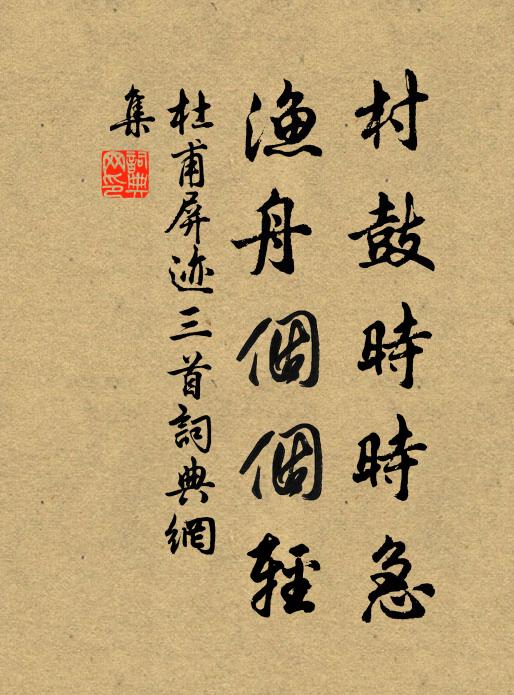 村鼓時時急
漁舟個個輕
杜甫屏迹三首詞典網
集
詞典
网印